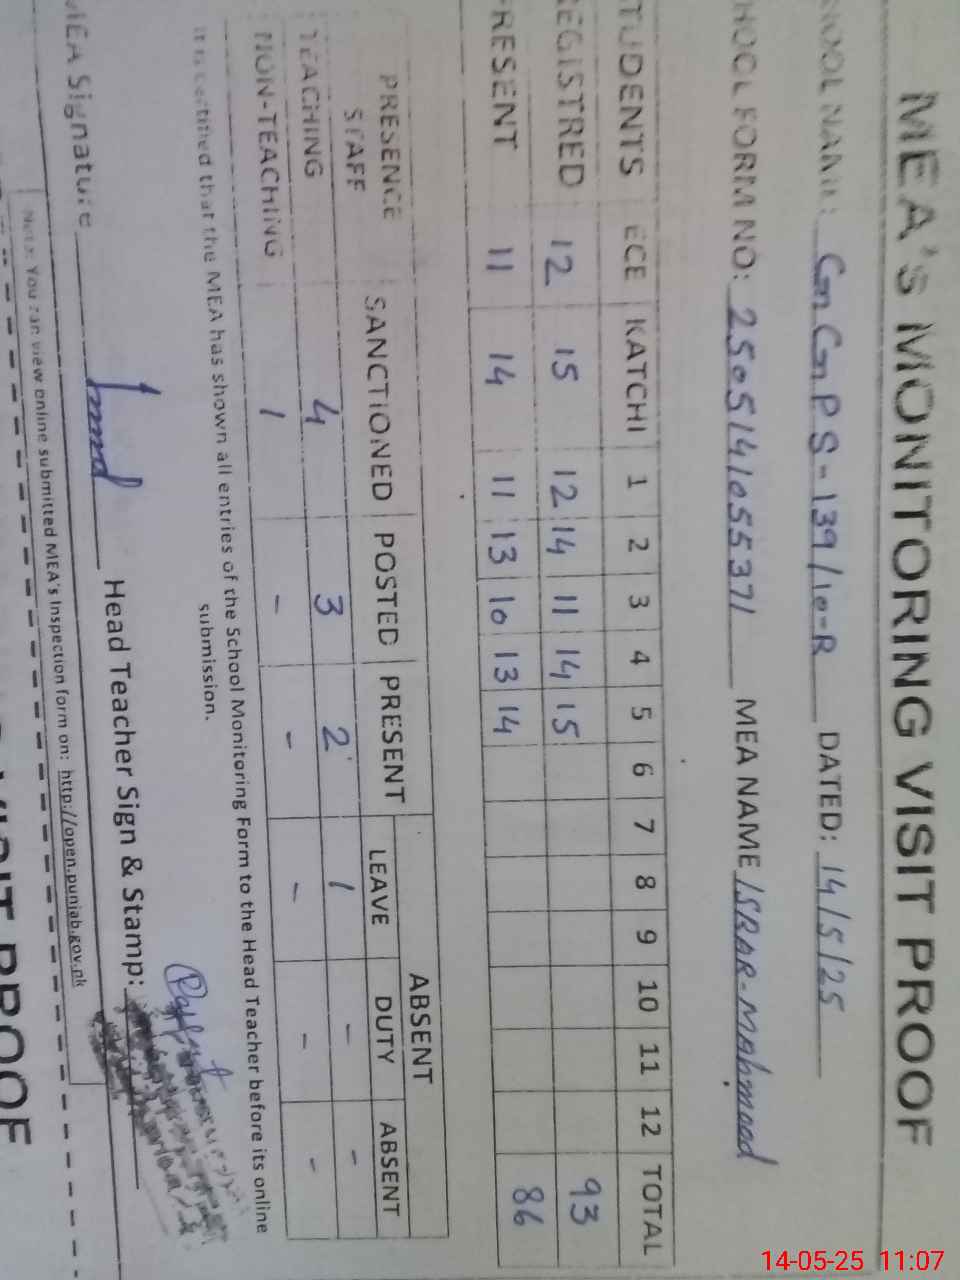 MEA's MONITORING VISIT PROOF
SCHOOL NAME: GGPS-139/10-R DATED: 14/5/25
SCHOOL FORM NO: 2505141055371 MEA NAME ISRAR-Mahmood
STUDENTS ECE KATCHI 1 2 3 4 5 6 7 8 9 10 11 12 TOTAL
REGISTRED 12 15 12 14 11 14 15 93
PRESENT 11 14 11 13 10 13 14 86
PRESENCE SANCTIONED POSTED PRESENT ABSENT
STAFF LEAVE DUTY ABSENT
TEACHING 4 3 2 1 - -
NON-TEACHING 1 - - - - -
It is certified that the MEA has shown all entries of the School Monitoring Form to the Head Teacher before its online
submission.
MEA Signature Head Teacher Sign & Stamp:
Note: You can view online submitted MEA's Inspection form on: http://open.punjab.gov.pk
VISIT PROOF
14-05-25 11:07